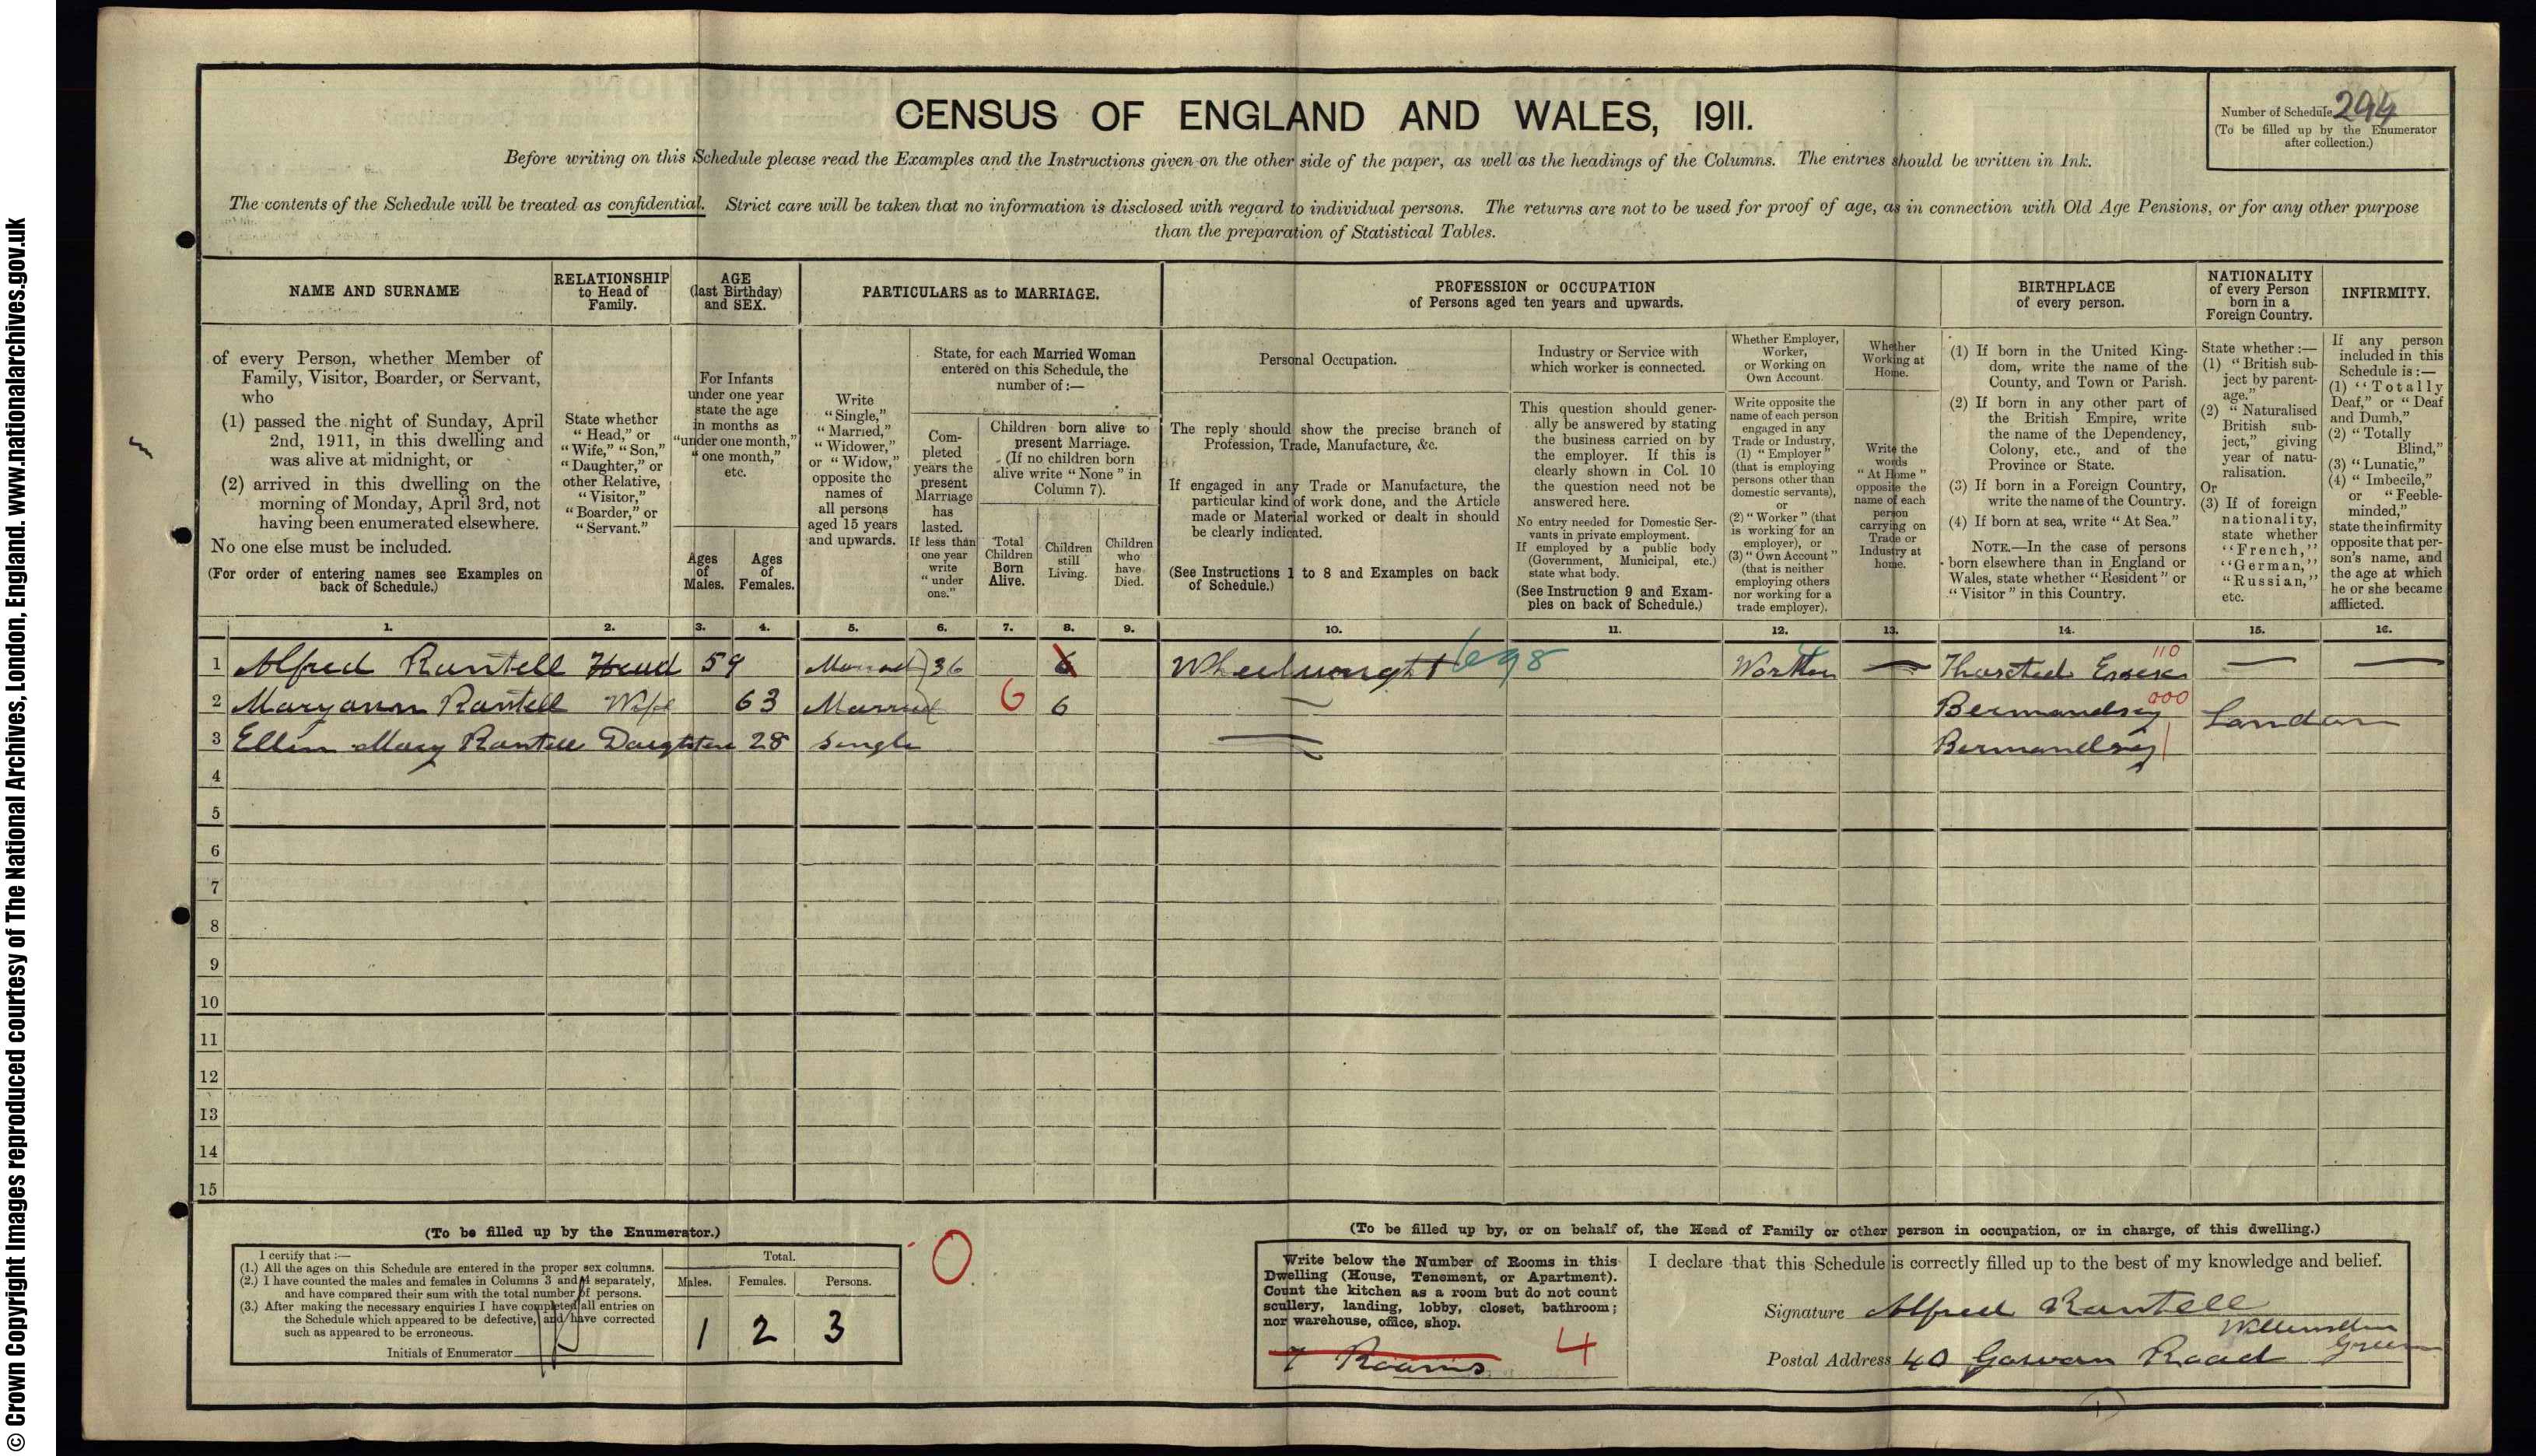 © Crown Copyright Images reproduced courtesy of The National Archives, London, England. www.nationalarchives.gov.uk
CENSUS OF ENGLAND AND WALES, 1911.
Number of Schedule 294
(To be filled up by the Enumerator
after collection.)
Before writing on this Schedule please read the Examples and the Instructions given on the other side of the paper, as well as the headings of the Columns. The entries should be written in Ink.
The contents of the Schedule will be treated as confidential. Strict care will be taken that no information is disclosed with regard to individual persons. The returns are not to be used for proof of age, as in connection with Old Age Pensions, or for any other purpose
than the preparation of Statistical Tables.
NAME AND SURNAME
RELATIONSHIP
to Head of
Family.
AGE
(last Birthday)
and SEX.
PARTICULARS as to MARRIAGE.
PROFESSION or OCCUPATION
of Persons aged ten years and upwards.
BIRTHPLACE
of every person.
NATIONALITY
of every Person
born in a
Foreign Country.
INFIRMITY.
of every Person, whether Member of
Family, Visitor, Boarder, or Servant,
who
(1) passed the night of Sunday, April
2nd, 1911, in this dwelling and
was alive at midnight, or
(2) arrived in this dwelling on the
morning of Monday, April 3rd, not
having been enumerated elsewhere.
No one else must be included.
(For order of entering names see Examples on
back of Schedule.)
State whether
"Head," or
"Wife," "Son,"
"Daughter," or
other Relative,
"Visitor,"
"Boarder," or
"Servant."
For Infants
under one year
state the age
in months as
"under one month,"
"one month,"
etc.
Ages
of
Males.
Ages
of
Females.
Write
"Single,"
"Married,"
"Widower,"
or "Widow,"
opposite the
names of
all persons
aged 15 years
and upwards.
State, for each Married Woman
entered on this Schedule, the
number of:—
Com-
pleted
years the
present
Marriage
has
lasted.
If less than
one year
write
"under
one."
Children born alive to
present Marriage.
(If no children born
alive write "None" in
Column 7).
Total
Children
Born
Alive.
Children
still
Living.
Children
who
have
Died.
Personal Occupation.
The reply should show the precise branch of
Profession, Trade, Manufacture, &c.
If engaged in any Trade or Manufacture, the
particular kind of work done, and the Article
made or Material worked or dealt in should
be clearly indicated.
(See Instructions 1 to 8 and Examples on back
of Schedule.)
Industry or Service with
which worker is connected.
This question should gener-
ally be answered by stating
the business carried on by
the employer. If this is
clearly shown in Col. 10
the question need not be
answered here.
No entry needed for Domestic Ser-
vants in private employment.
If employed by a public body
(Government, Municipal, etc.)
state what body.
(See Instruction 9 and Exam-
ples on back of Schedule.)
Whether Employer,
Worker,
or Working on
Own Account.
Write opposite the
name of each person
engaged in any
Trade or Industry,
(1) "Employer"
(that is employing
persons other than
domestic servants),
or
(2) "Worker" (that
is working for an
employer), or
(3) "Own Account"
(that is neither
employing others
nor working for a
trade employer).
Whether
Working at
Home.
Write the
words
"At Home"
opposite the
name of each
person
carrying on
Trade or
Industry at
home.
(1) If born in the United King-
dom, write the name of the
County, and Town or Parish.
(2) If born in any other part of
the British Empire, write
the name of the Dependency,
Colony, etc., and of the
Province or State.
(3) If born in a Foreign Country,
write the name of the Country.
(4) If born at sea, write "At Sea."
NOTE.—In the case of persons
born elsewhere than in England or
Wales, state whether "Resident" or
"Visitor" in this Country.
State whether:—
(1) "British sub-
ject by parent-
age."
(2) "Naturalised
British sub-
ject," giving
year of natu-
ralisation.
Or
(3) If of foreign
nationality,
state whether
"French,"
"German,"
"Russian,"
etc.
If any person
included in this
Schedule is:—
(1) "Totally
Deaf," or "Deaf
and Dumb,"
(2) "Totally
Blind,"
(3) "Lunatic,"
(4) "Imbecile,"
or "Feeble-
minded,"
state the infirmity
opposite that per-
son's name, and
the age at which
he or she became
afflicted.
1. 2. 3. 4. 5. 6. 7. 8. 9. 10. 11. 12. 13. 14. 15. 16.
1 Alfred Rantell Head 59 Married 36 6 Wheelwright 698 Worker — Thaxted Essex 110 — —
2 Maryann Rantell Wife 63 Married 6 6 — Bermondsey 000 London
3 Ellen Mary Rantell Daughter 28 Single — Bermondsey
4
5
6
7
8
9
10
11
12
13
14
15
(To be filled up by the Enumerator.)
I certify that:—
(1.) All the ages on this Schedule are entered in the proper sex columns.
(2.) I have counted the males and females in Columns 3 and 4 separately,
and have compared their sum with the total number of persons.
(3.) After making the necessary enquiries I have completed all entries on
the Schedule which appeared to be defective, and have corrected
such as appeared to be erroneous.
Initials of Enumerator
Total.
Males. Females. Persons.
1 2 3
0
(To be filled up by, or on behalf of, the Head of Family or other person in occupation, or in charge, of this dwelling.)
Write below the Number of Rooms in this
Dwelling (House, Tenement, or Apartment).
Count the kitchen as a room but do not count
scullery, landing, lobby, closet, bathroom;
nor warehouse, office, shop.
7 Rooms 4
I declare that this Schedule is correctly filled up to the best of my knowledge and belief.
Signature Alfred Rantell
Postal Address 40 Gowan Road Willesden Green